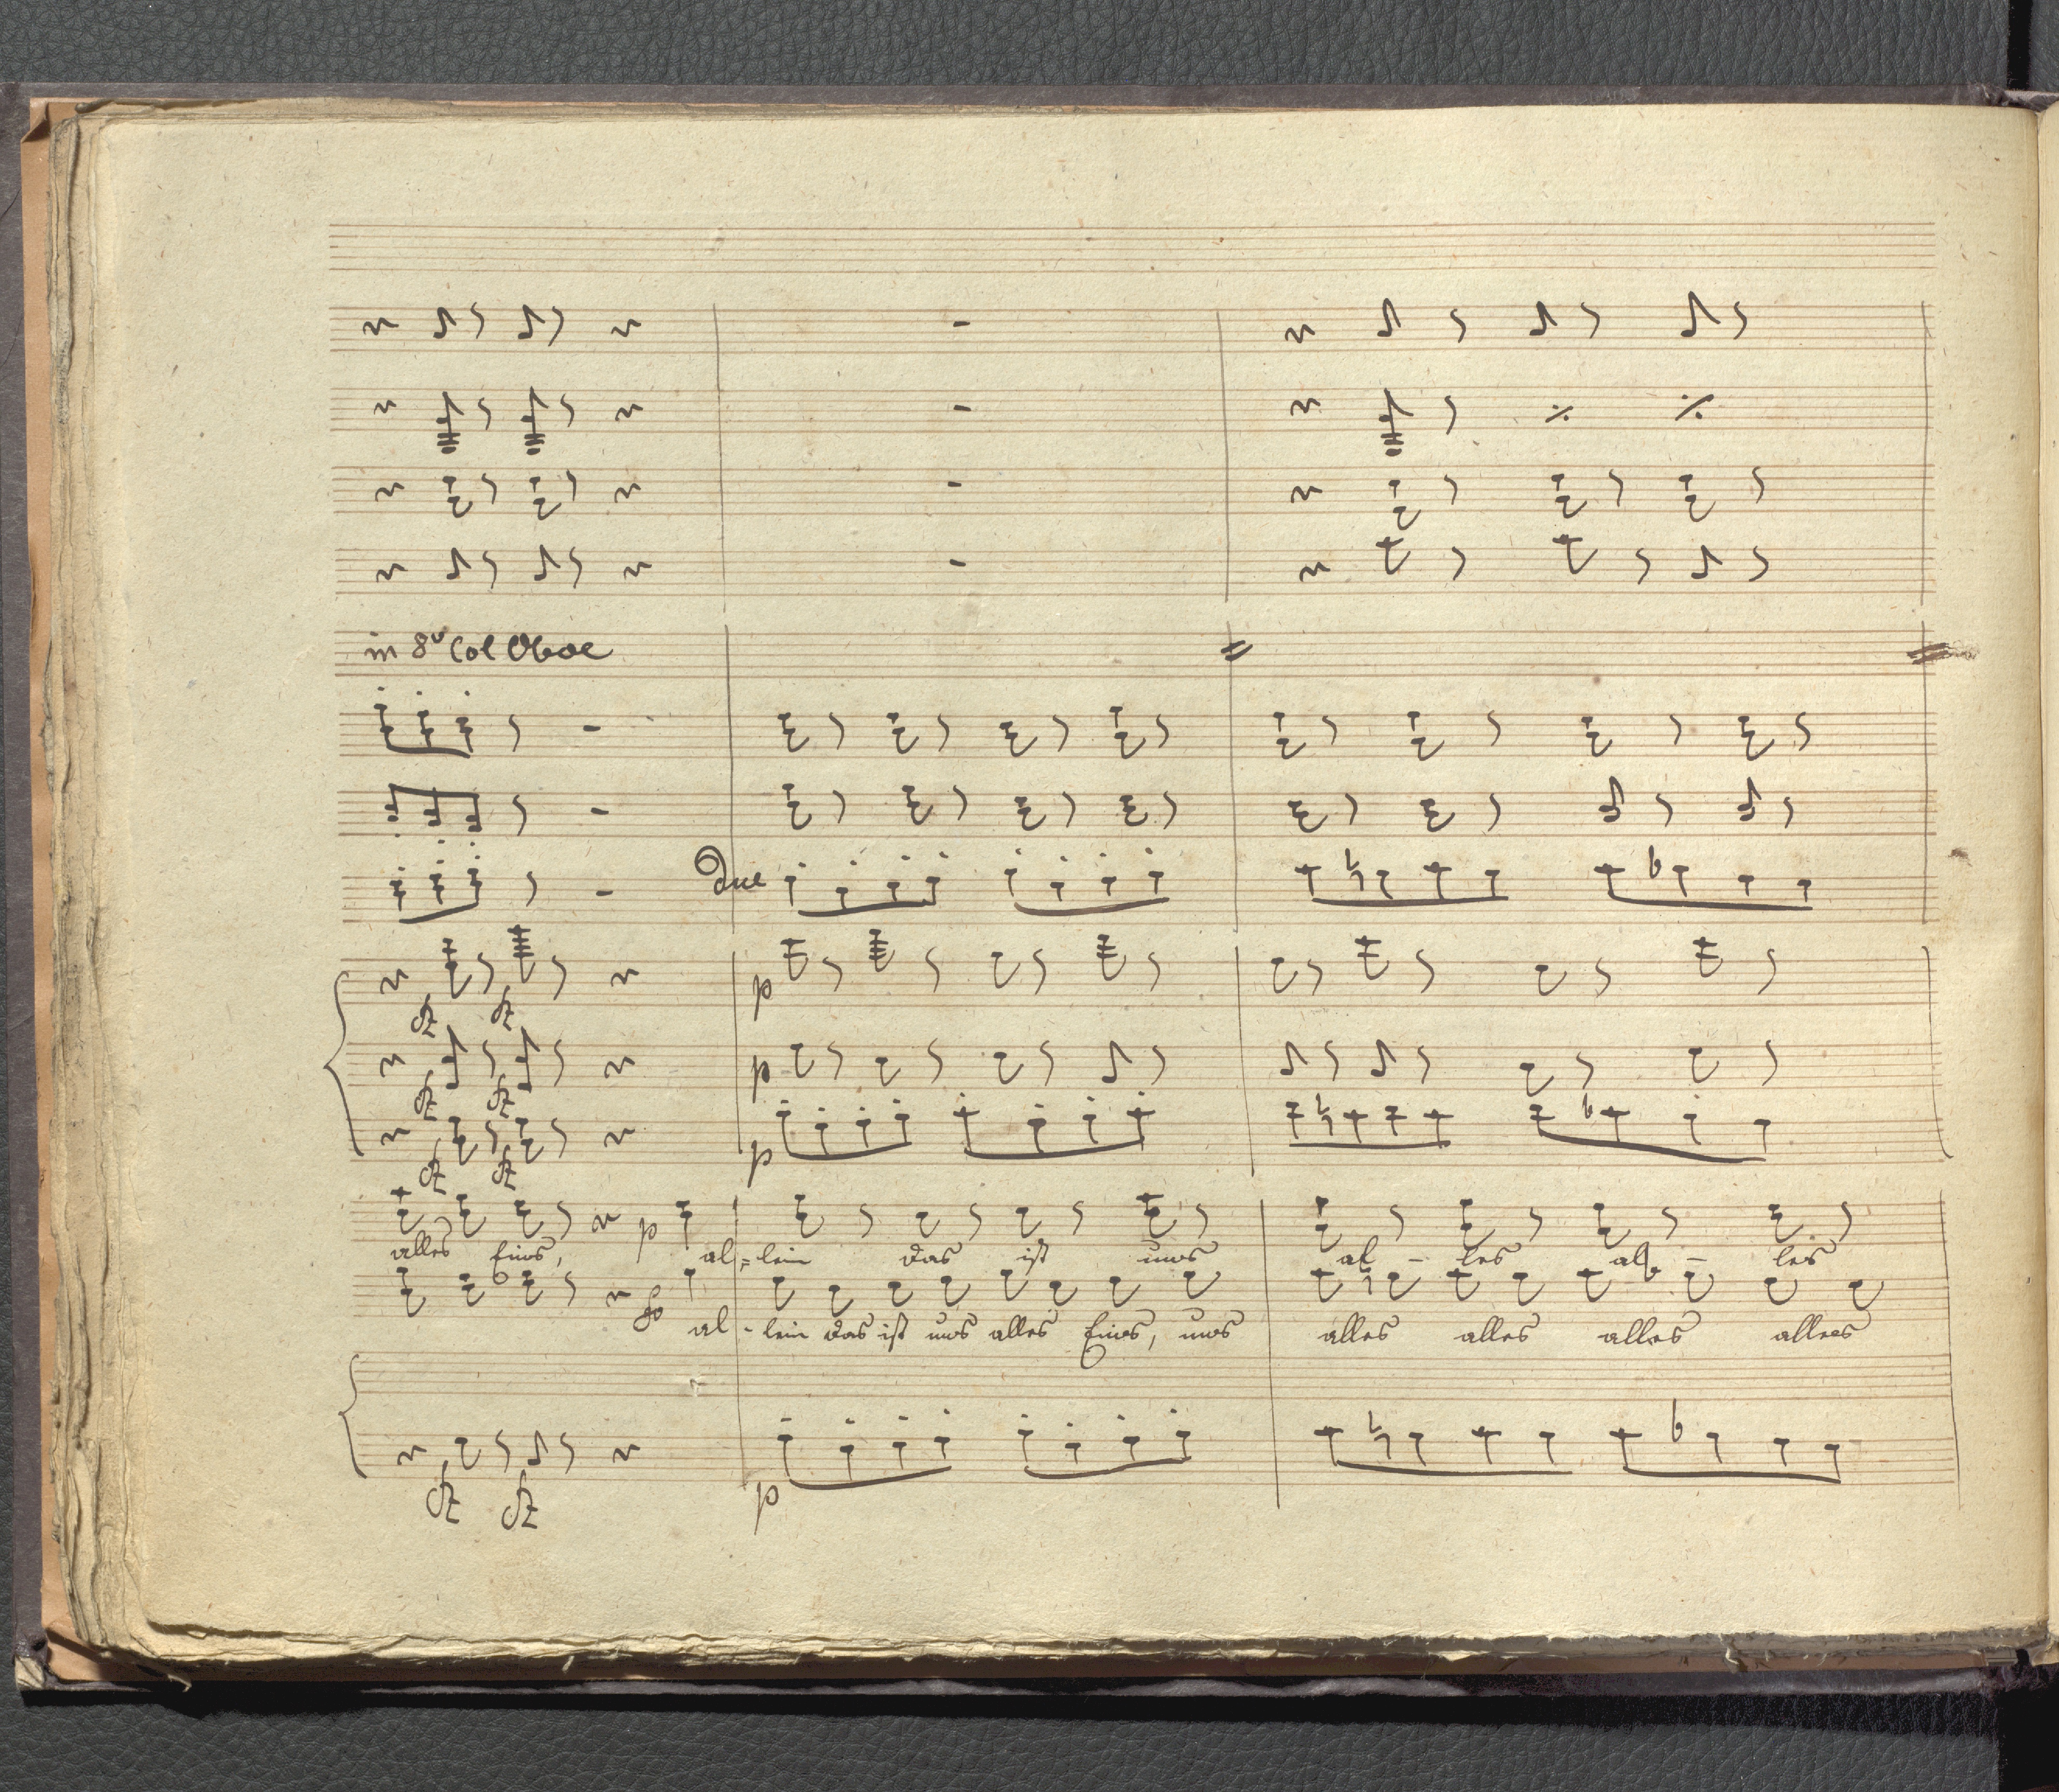 in 8va Col Oboe
Due
p
p
p
p
alles Eins, al=lein das ist uns al - les al - les
al - lein das ist uns alles Eins, uns alles alles alles alles
p